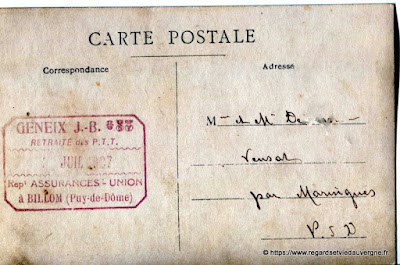 CARTE POSTALE
Correspondance
Adresse
GENEIX J.-B.
RETRAITÉ des P.T.T.
JUIL
Rept ASSURANCES - UNION
à BILLOM (Puy-de-Dôme)
Mr et Me
Vensat
par Maringues
P. de D
www.regardsetviedauvergne.fr